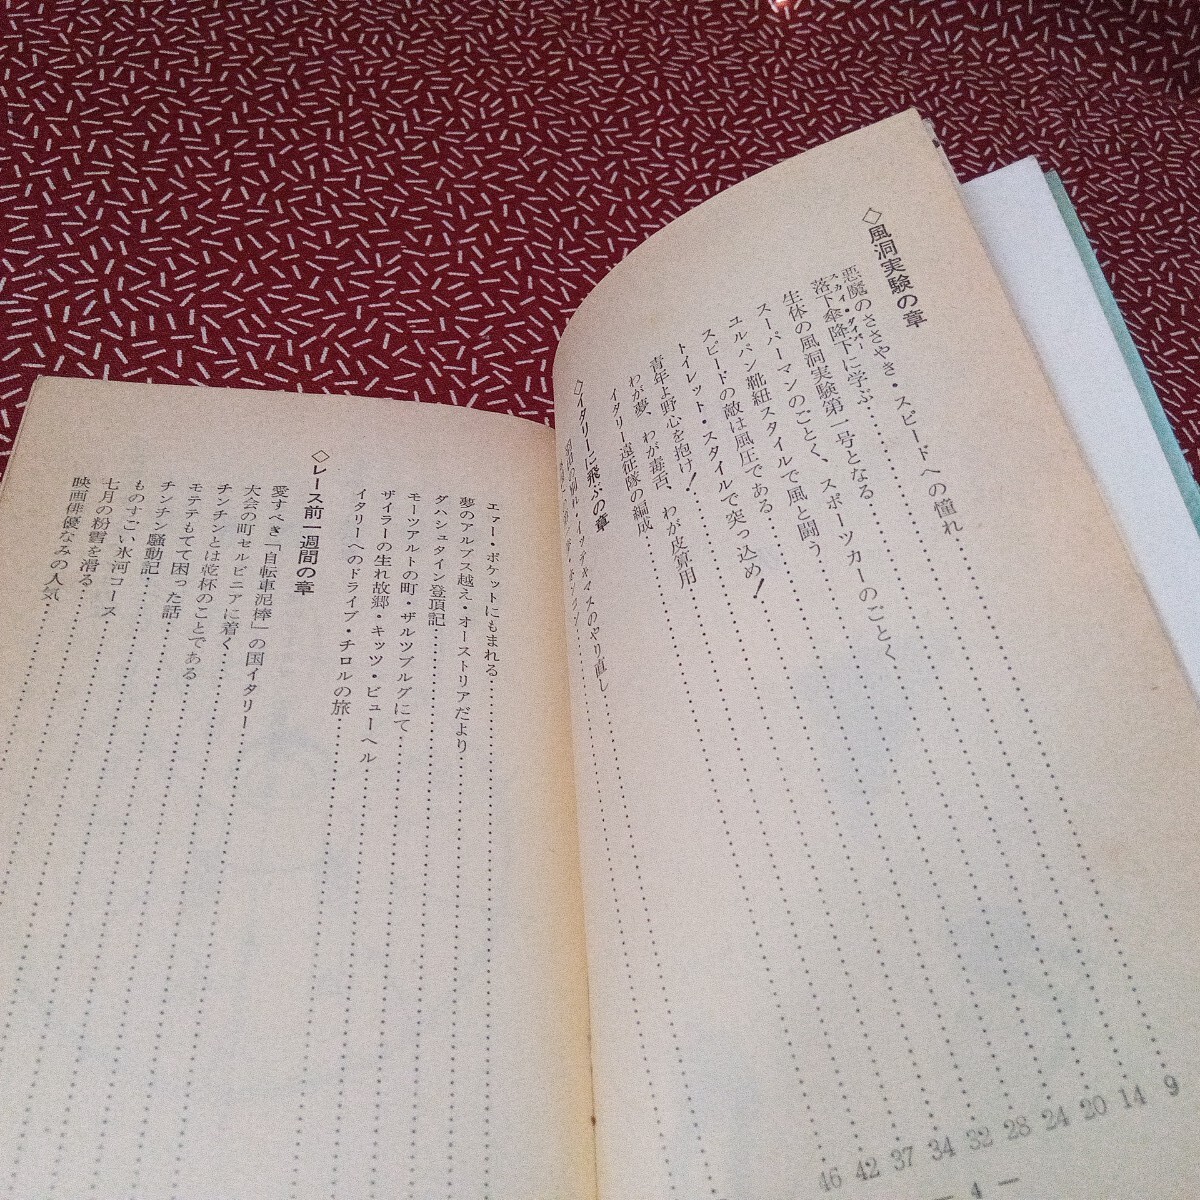 ◇風洞実験の章
悪魔のささやき・スピードへの憧れ
落下傘降下に学ぶ
スカイ・ダイバー
生体の風洞実験第一号となる
スーパーマンのごとく、スポーツカーのごとく
エルパン靴紐スタイルで風と闘う
スピードの敵は風圧である
トイレット・スタイルで突っ込め!
青年よ野心を抱け!
わが夢、わが毒舌、わが皮算用
イタリー遠征隊の編成
◇イタリーに飛ぶの章
9
14
20
24
28
32
34
37
42
46
— 4 —
エアー・ポケットにもまれる
夢のアルプス越え・オーストリアだより
ダハシュタイン登頂記
モーツアルトの町・ザルツブルグにて
ザイラーの生れ故郷・キッツ・ビューヘル
イタリーへのドライブ・チロルの旅
◇レース前一週間の章
愛すべき「自転車泥棒」の国イタリー
大会の町セルビニアに着く
チンチンとは乾杯のことである
モテテもてて困った話
チンチン騒動記
ものすごい氷河コース
七月の粉雪を滑る
映画俳優なみの人気